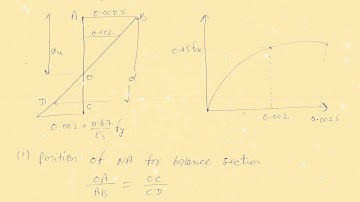 A 0.0025 B
0.002
xu
O
d
D
C
0.002 + 0.87/Es fy
0.45fck
0.002 0.0025
(i) Position of NA for balance section
OA/AB = OC/CD